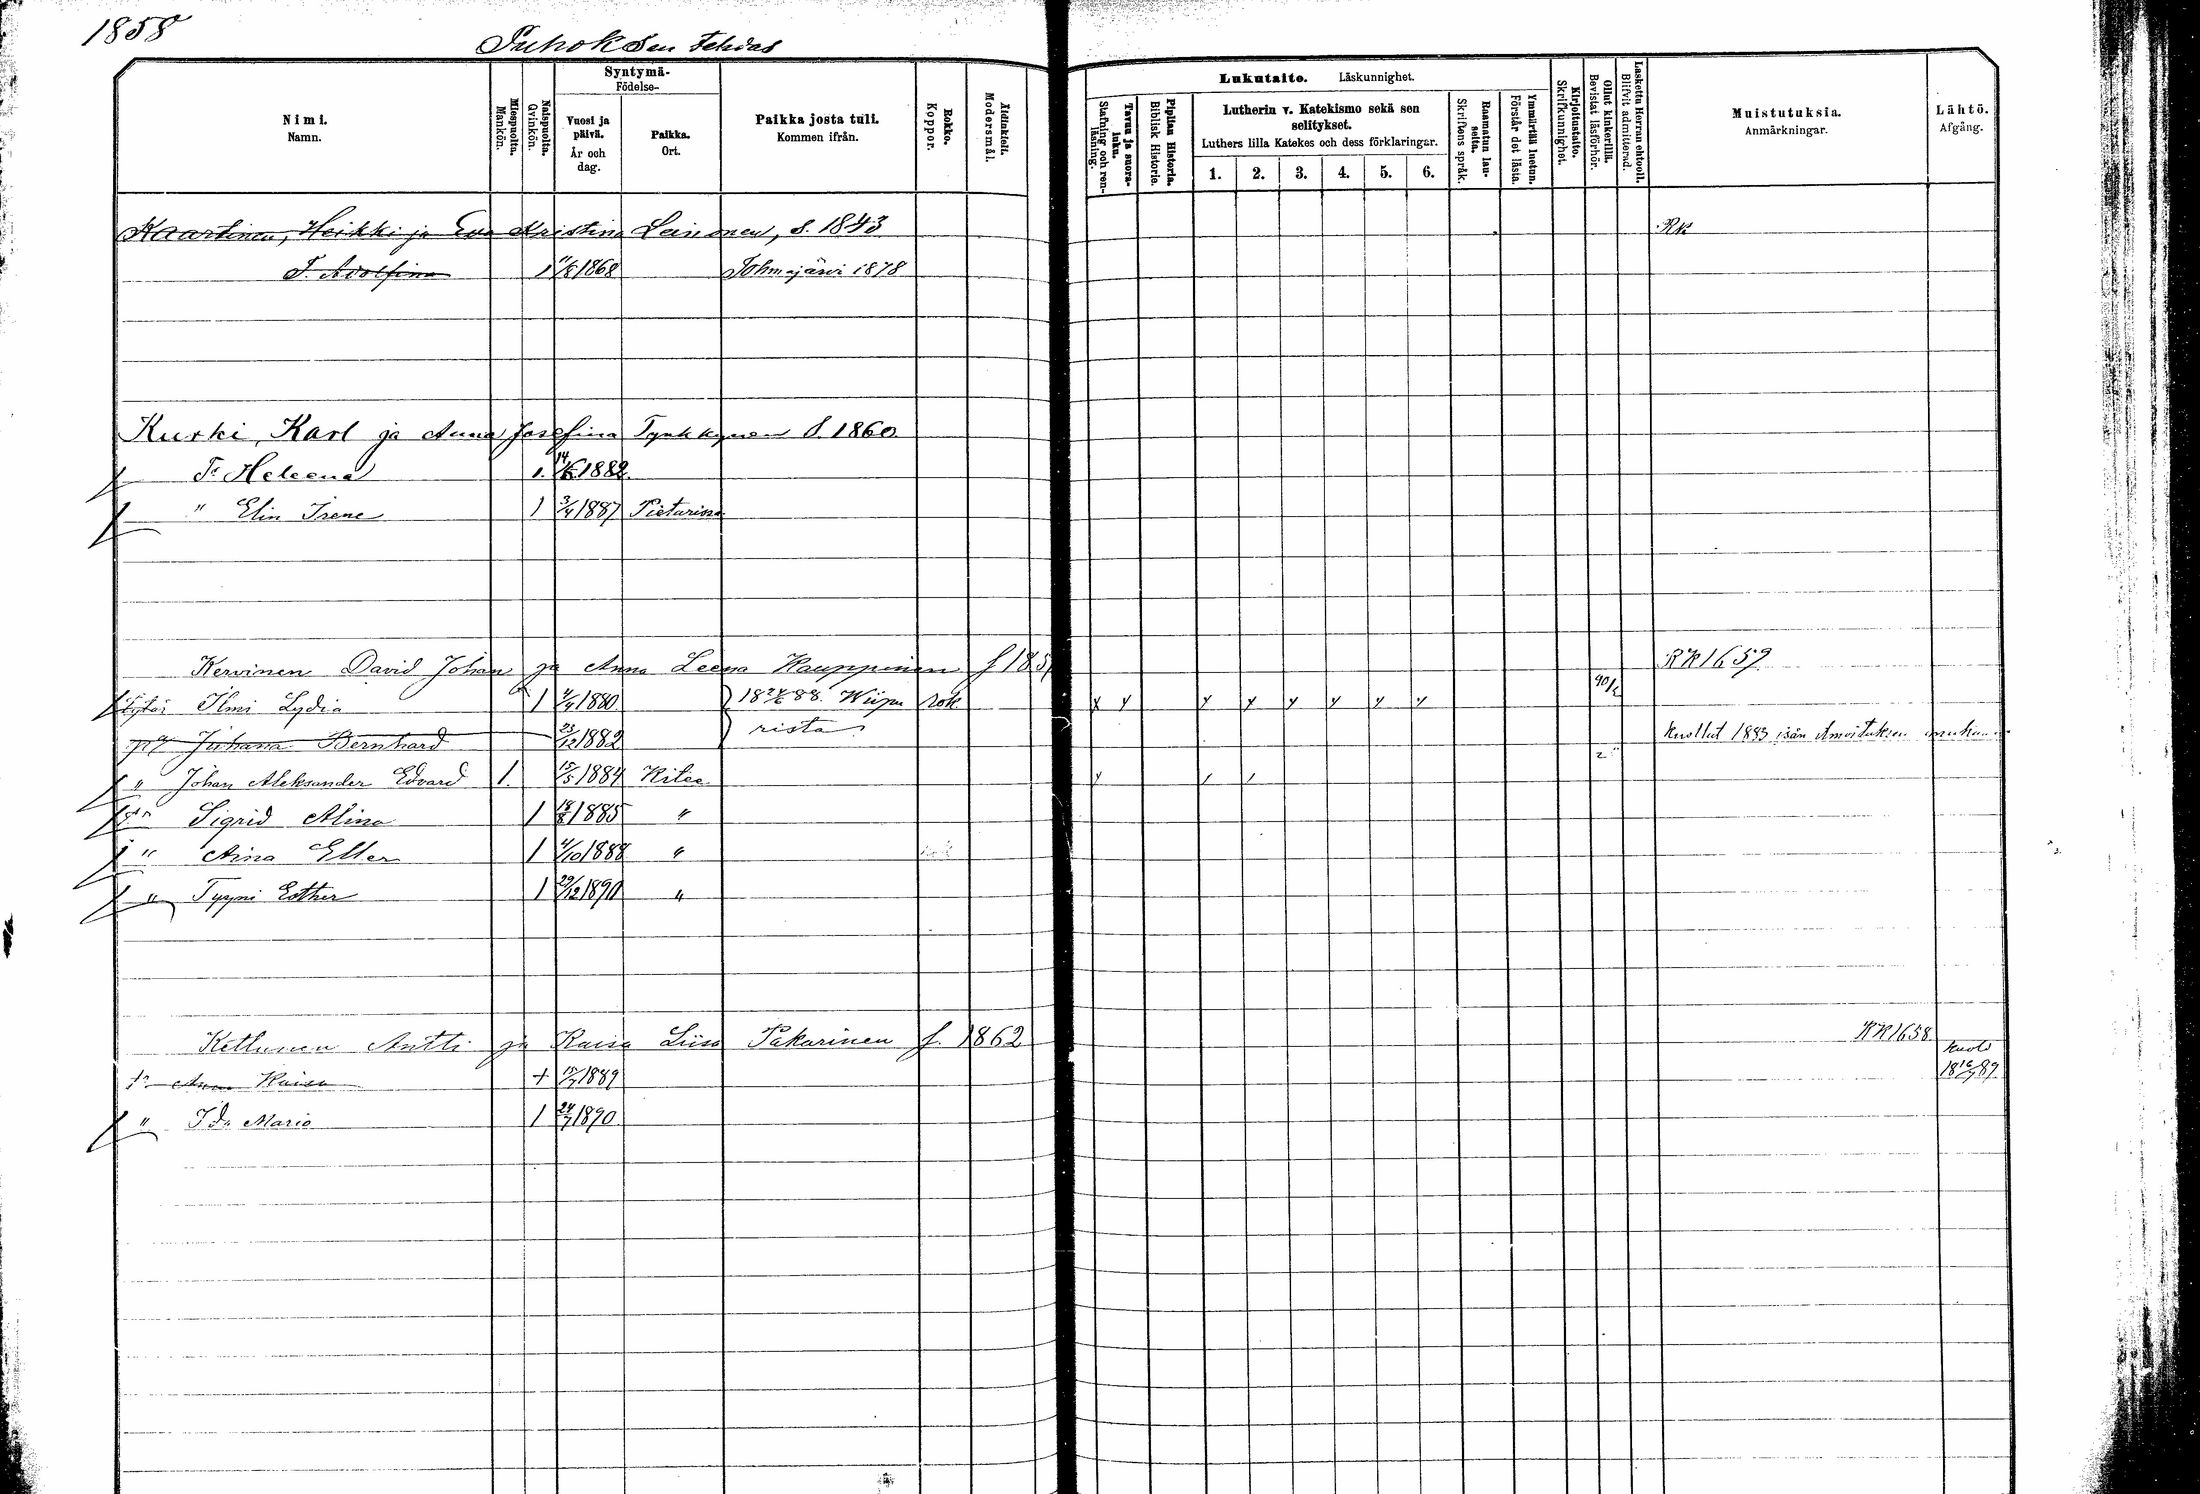 1858
Puhoksen Tehdas
Nimi.
Namn.
Miespuolta.
Mankön.
Naispuolta.
Qvinkön.
Syntymä-
Födelse-
Vuosi ja
päivä.
År och
dag.
Paikka.
Ort.
Paikka josta tuli.
Kommen ifrån.
Rokko.
Koppor.
Äidinkieli.
Modersmål.
Lukutaito. Läskunnighet.
Tavuu ja suora-
luku.
Stafning och ren-
läsning.
Piplian Historia.
Biblisk Historie.
Lutherin v. Katekismo sekä sen
selitykset.
Luthers lilla Katekes och dess förklaringar.
1. 2. 3. 4. 5. 6.
Raamatun lau-
seita.
Skriftens språk.
Ymmärtää luetun.
Förstår det lästa.
Kirjoitustaito.
Skrifkunnighet.
Ollut kinkerillä.
Bevistat läsförhör.
Laskettu Herran ehtooll.
Blifvit admitterad.
Muistutuksia.
Anmärkningar.
Lähtö.
Afgång.
Kaartinen, Heikki ja Eva Kristina Leinonen, S. 1843 RK
T. Adolfina 1 11/8 1868 Tohmajärvi 1878
Kurki, Karl ja Anna Josefina Tynkkynen S. 1860.
Tr Heleena 1. 14/6 1882.
" Elin Irene 1 3/4 1887 Pietarissa
Kervinen David Johan ja Anna Leena Kauppinen f 185 RK 1659
Tytär Ilmi Lydia 1 4/4 1880 18 24/6 88. Wiipu rok x y y y y y y y 90/2
rista
pg Juhana Bernhard 23/12 1882 Kuollut 1883 isän ilmoituksen mukaan
" Johan Aleksander Edvard 1. 15/5 1884 Kitee y
tr Sigrid Alina 1 18/8 1885 "
" Aina Ester 1 4/10 1888 "
" Tyyni Esther 1 29/12 1890 "
Kettunen Antti ja Kaisa Liisa Pakarinen f. 1862 RK 1658
tr Anna Kaisa + 15/7 1889 kuoli 18 16/7 89
" Ida Maria 1 24/7 1890.